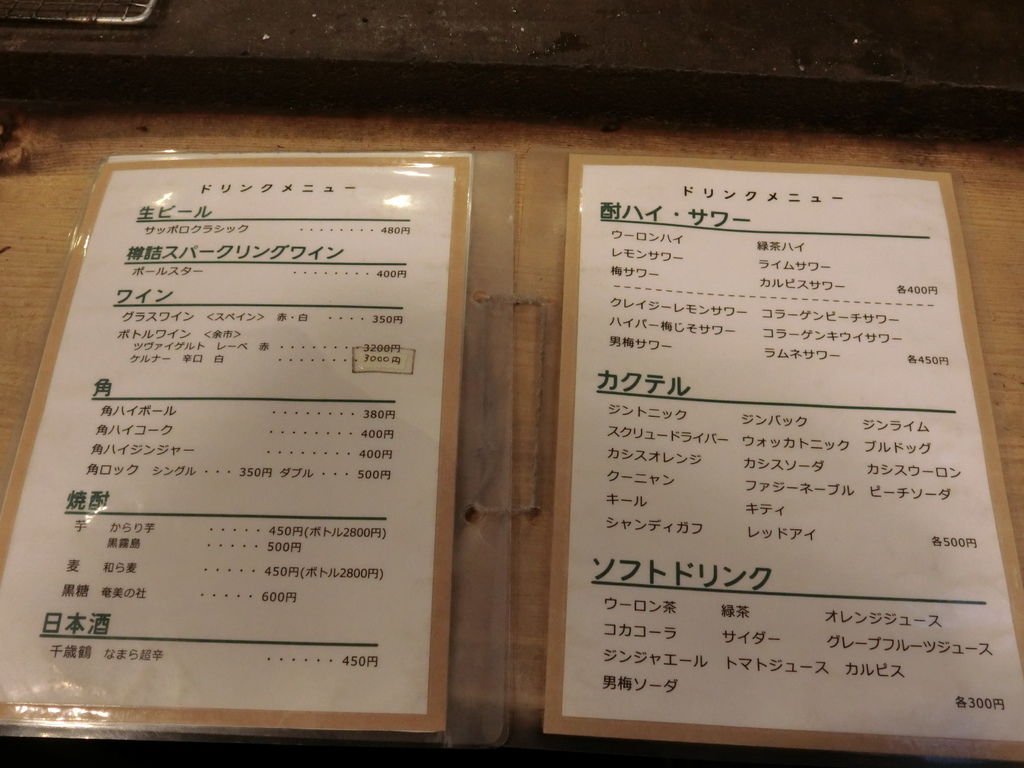 ドリンクメニュー
生ビール
サッポロクラシック ・・・・・・・・ 480円
樽詰スパークリングワイン
ポールスター ・・・・・・・・ 400円
ワイン
グラスワイン <スペイン> 赤・白 ・・・・ 350円
ボトルワイン <余市>
ツヴァイゲルト レーベ 赤 ・・・・・・・・ 3200円
ケルナー 辛口 白 ・・・・・・・・ 3000円
角
角ハイボール ・・・・・・・・ 380円
角ハイコーク ・・・・・・・・ 400円
角ハイジンジャー ・・・・・・・・ 400円
角ロック シングル ・・・ 350円 ダブル ・・・ 500円
焼酎
芋 からり芋 ・・・・・ 450円(ボトル2800円)
黒霧島 ・・・・・ 500円
麦 和ら麦 ・・・・・ 450円(ボトル2800円)
黒糖 奄美の杜 ・・・・・ 600円
日本酒
千歳鶴 なまら超辛 ・・・・・・ 450円
ドリンクメニュー
酎ハイ・サワー
ウーロンハイ 緑茶ハイ
レモンサワー ライムサワー
梅サワー カルピスサワー 各400円
クレイジーレモンサワー コラーゲンピーチサワー
ハイパー梅じそサワー コラーゲンキウイサワー
男梅サワー ラムネサワー 各450円
カクテル
ジントニック ジンバック ジンライム
スクリュードライバー ウォッカトニック ブルドッグ
カシスオレンジ カシスソーダ カシスウーロン
クーニャン ファジーネーブル ピーチソーダ
キール キティ
シャンディガフ レッドアイ 各500円
ソフトドリンク
ウーロン茶 緑茶 オレンジジュース
コカコーラ サイダー グレープフルーツジュース
ジンジャエール トマトジュース カルピス
男梅ソーダ 各300円